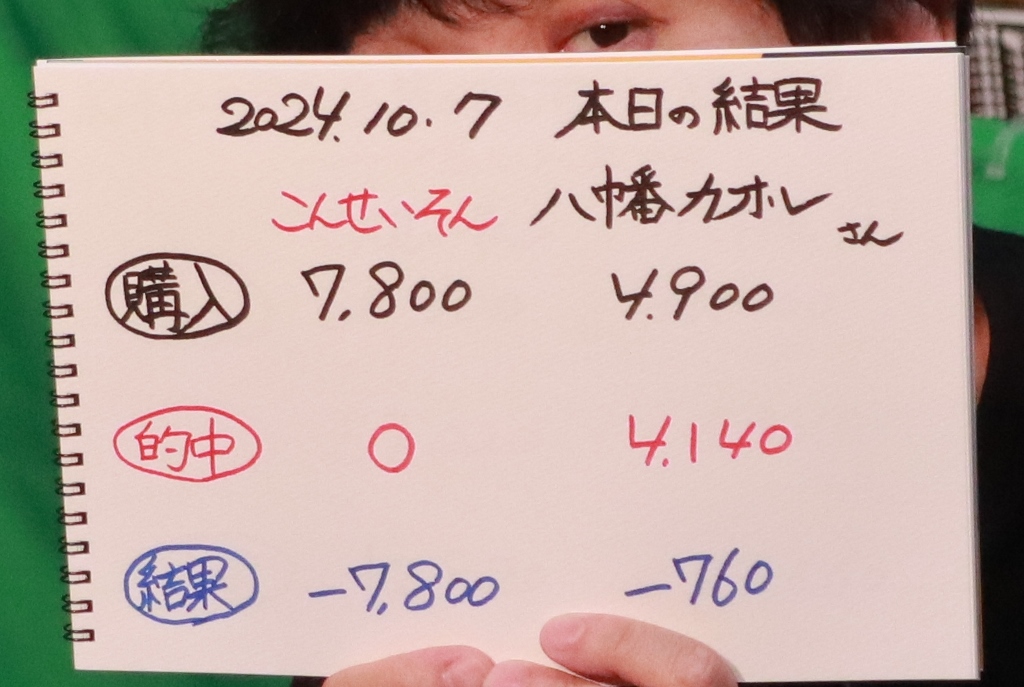 2024.10.7 本日の結果
こんせいそん 八幡カオル さん
購入 7,800 4,900
的中 0 4,140
結果 -7,800 -760